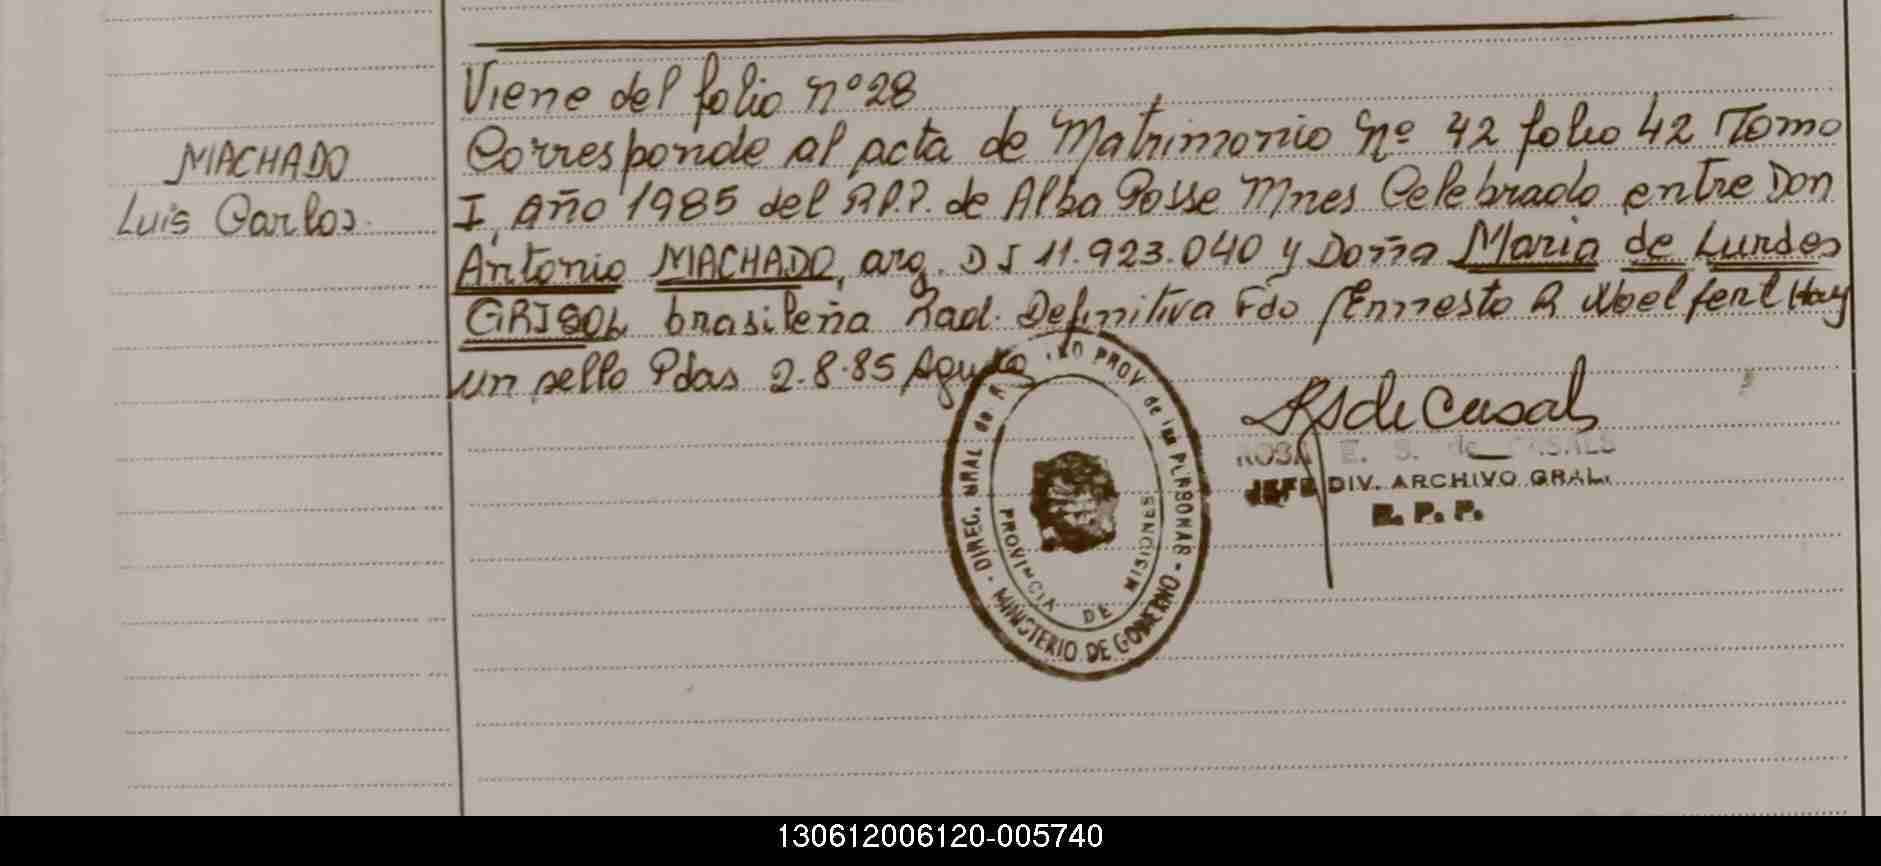 Viene del folio nº 28
Corresponde al acta de Matrimonio Nº 42 folio 42 Tomo
MACHADO
Luis Carlos.
I, Año 1985 del R.P.P. de Alba Posse Mnes Celebrado entre Don
Antonio MACHADO, arg. DI 11.923.040 y Doña Maria de Lurdes
brasileña Rad. Definitiva Fdo Ernesto R Hay
un sello Pdas 2.8.85 Agosto
ROSA E. S. de CASALS
JEFE DIV. ARCHIVO GRAL.
R. P. P.
DIREC. GRAL de R. PROV de las PERSONAS - MINISTERIO DE GOBIERNO -
PROVINCIA DE MISIONES
130612006120-005740